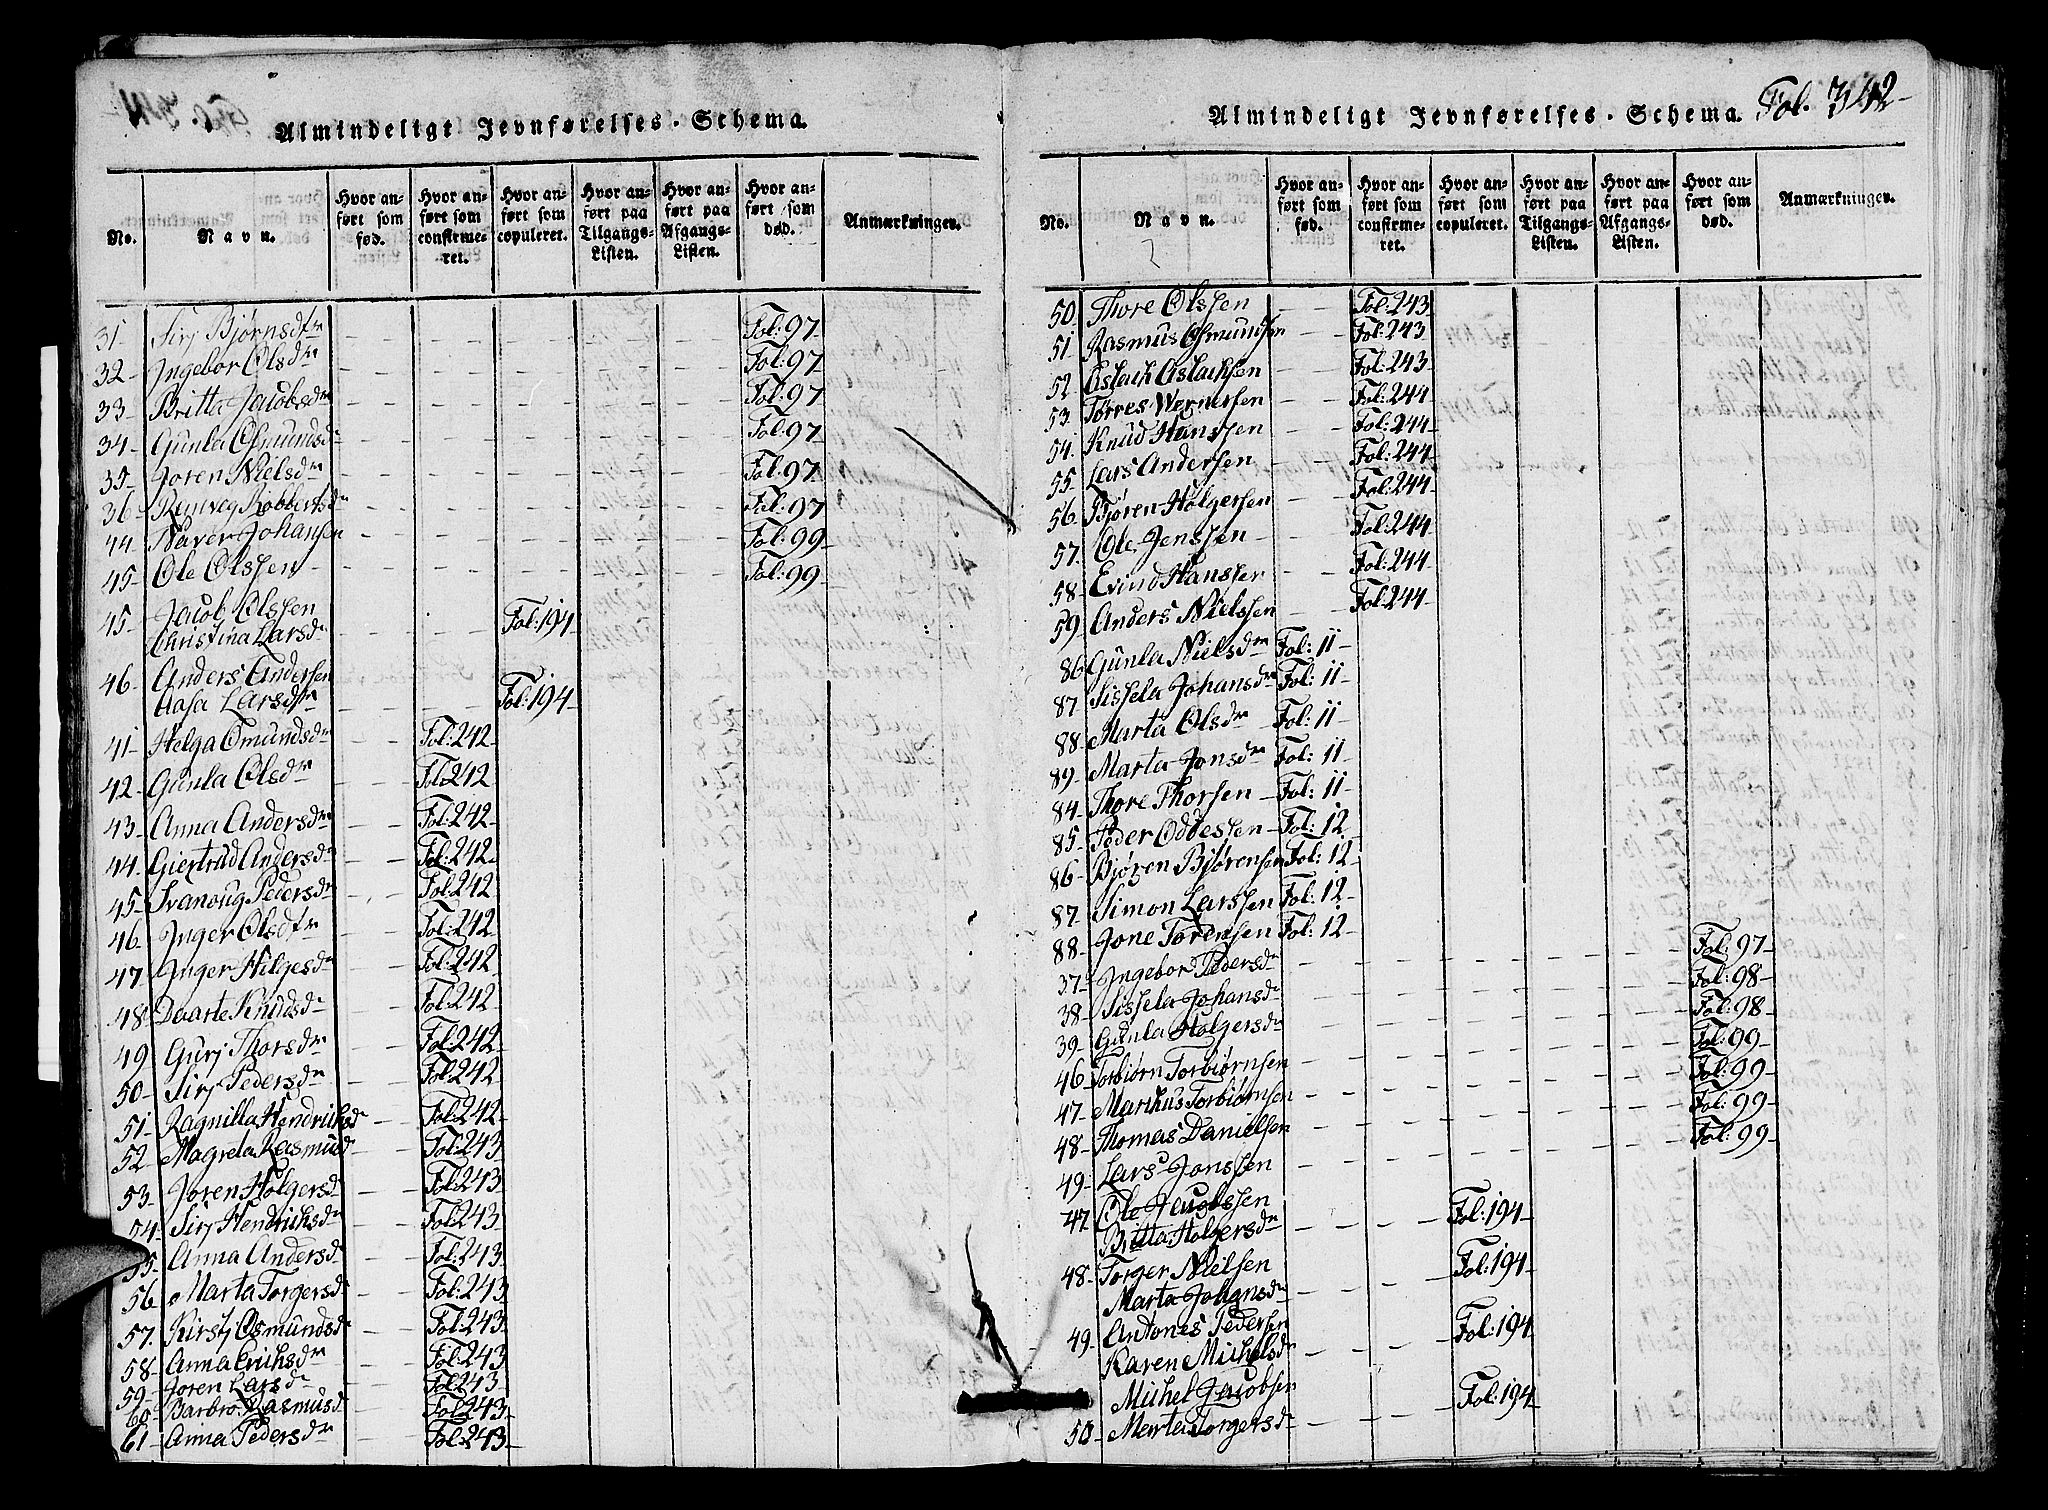 Almindeligt Jevnførelses-Schema.
No.
Navn.
Hvor anført som fød.
Hvor anført som confirmeret.
Hvor anført som copuleret.
Hvor anført paa Tilgangs-Listen.
Hvor anført paa Afgangs-Listen.
Hvor anført som død.
Anmærkninger.
31- Sirj Bjørnsdtr Fol: 97
32- Ingebor Olsdr Fol: 97
33- Britta Jacobsdr Fol: 97
34- Gunla Osmundsdr Fol: 97
35- Joren Nielsdr Fol: 97
36- Renveg Robbertsdr Fol: 97
44- Naver Johansen Fol: 99
45- Ole Olssen Fol: 99
45- Jacob Olssen
Christina Larsdr Fol: 194
46- Anders Andersen
Aasa Larsdtr Fol: 194
41- Helga Omundsdr Fol: 242
42- Gunla Olsdr Fol: 242
43- Anna Andersdr Fol: 242
44- Giertrud Andersdr Fol: 242
45- Svanoug Pedersdr Fol: 242
46- Inger Olsdtr Fol: 242
47- Inger Helgesdr Fol: 242
48- Daarte Knudsdr Fol: 242
49 Gurj Thorsdr Fol: 242
50- Sirj Pedersdr Fol: 242
51- Ragnilla Hendrichsdr Fol: 242
52 Magreta Rasmusdr Fol: 243
53- Joren Holgersdr Fol: 243
54- Sirj Hendrichsdr Fol: 243
55- Anna Andersdr Fol: 243
56- Marta Torgersdr Fol: 243
57. Kirstj Osmundsdr Fol: 243
58- Anna Erichsdr Fol: 243
59- Joren Larsdr Fol: 243
60- Barbro Rasmusdr Fol: 243
61- Anna Pedersdr Fol: 243
Almindeligt Jevnførelses-Schema. Fol. 342
No.
Navn.
Hvor anført som fød.
Hvor anført som confirmeret.
Hvor anført som copuleret.
Hvor anført paa Tilgangs-Listen.
Hvor anført paa Afgangs-Listen.
Hvor anført som død.
Anmærkninger.
50- Thore Olssen Fol: 243
51 Rasmus Osmundsen Fol: 243
52 Aslach Aslachsen Fol: 243
53. Tørres Wernersen Fol: 244
54. Knud Hanssen Fol: 244
55- Lars Andersen Fol: 244
56- Bjøren Holgersen Fol: 244
57. Ole Jenssen Fol: 244
58- Evind Hanssen Fol: 244
59 Anders Nielssen Fol: 244
86 Gunla Nielsdr Fol: 11
87 Sissela Johansdr Fol: 11
88- Marta Olsdr Fol: 11
89- Marta Jonsdr Fol: 11
84- Thore Thorsen Fol: 11
85- Peder Oddessen Fol: 12
86- Bjøren Bjørensen Fol: 12
87- Simon Larssen Fol: 12
88- Jone Torensen Fol: 12
37- Ingebor Pedersdr Fol: 97
38- Sissela Johansdr Fol: 98
39- Gunla Holgersdr Fol: 98
46 Torbiørn Torbiørnsen Fol: 99
47- Marchus Torbiørnsen Fol: 99
48- Thomas Danielsen Fol: 99
49- Lars Jonssen Fol: 99
47 Ole Jacobssen
Britta Holgersdr Fol: 194
48- Torger Nielsen
Marta Johansdr Fol: 194
49- Antones Pedersen
Karen Michelsdr Fol: 194
Michel Jacobsen
50- Marta Torgersdr Fol: 194